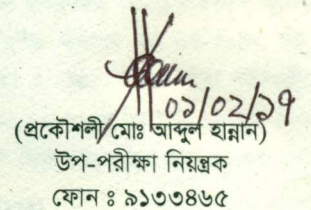 ০১/০২/১৭
(প্রকৌশলী মোঃ আব্দুল হান্নান)
উপ-পরীক্ষা নিয়ন্ত্রক
ফোন ঃ ৯১৩৩৪৬৫